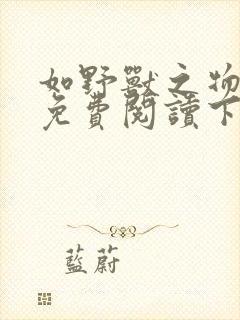 如野獸之物
免費閱讀下
藍蔚